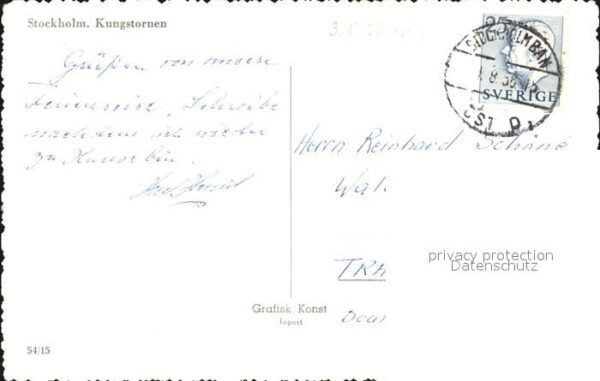 Stockholm. Kungstornen
3.8.56
Grüßen von unserer
Ferienreise, Schreibe
nachdem ich wieder
zu Hause bin.
25
STOCKHOLM BAN
8 56
SVERIGE
ÖST D1
Herrn Reinhard Schöne
Wal
privacy protection
Datenschutz
Grafisk Konst
Import
54/15